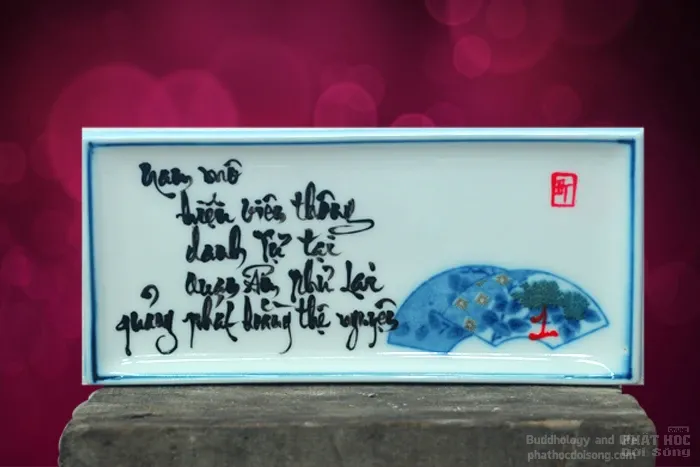 Nam mô
hiệu viên thông
danh Tự tại
Quan Âm Như Lai
quảng phát hoằng thệ nguyện
1
Buddhology and Life
PHAT HOC
DOI SONG
phathocdoisong.com